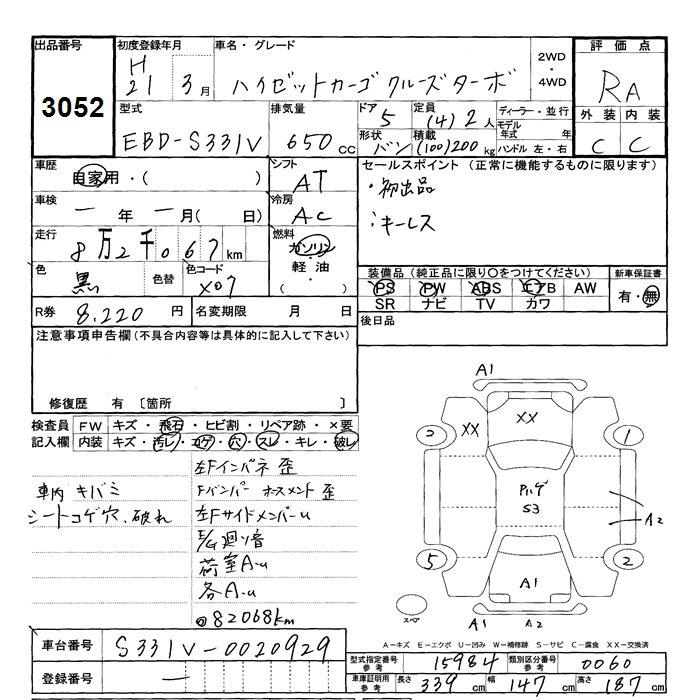 出品番号 初度登録年月 車名・グレード 2WD・4WD 評価点
3052 H21 3月 ハイゼットカーゴ クルーズターボ RA
型式 排気量 ドア 定員 ディーラー・並行 外装 内装
EBD-S331V 650cc 5 (4)2人 モデル年式 年 C C
形状 バン 積載 (100)200kg ハンドル 左・右
車歴 自家用・( ) シフト AT セールスポイント (正常に機能するものに限ります)
・初出品
車検 一年 一月( 日) 冷房 AC
キーレス
走行 8万2千067km 燃料 ガソリン
軽油
・( )
色 黒 色替 色コード X07
装備品(純正品に限り○をつけてください) 新車保証書
PS PW ABS エアB AW 有・無
SR ナビ TV カワ
R券 8,220円 名変期限 月 日 後日品
注意事項申告欄(不具合内容等は具体的に記入して下さい)
修復歴 有 〔箇所
検査員 FW キズ・飛石・ヒビ割・リペア跡・×要
記入欄 内装 キズ・汚レ・コゲ・穴・スレ・キレ・破レ
車内 キバミ
シートコゲ穴、破れ
左Fインパネ 歪
Fバンパー ホースメント 歪
左FサイドメンバーU
E/G廻り音
荷室A-U
各A-U
82068km
A1
XX XX
2 1
Pハゲ
S3
A2
5 2
A1
スペア A1 A2
A-キズ E-エクボ U-凹み W-補修跡 S-サビ C-腐食 XX-交換済
車台番号 S331V-0020929
登録番号 一
型式指定番号 参考 15984 類別区分番号 参考 0060
車庫証明用 参考 長さ 339cm 幅 147cm 高さ 187cm